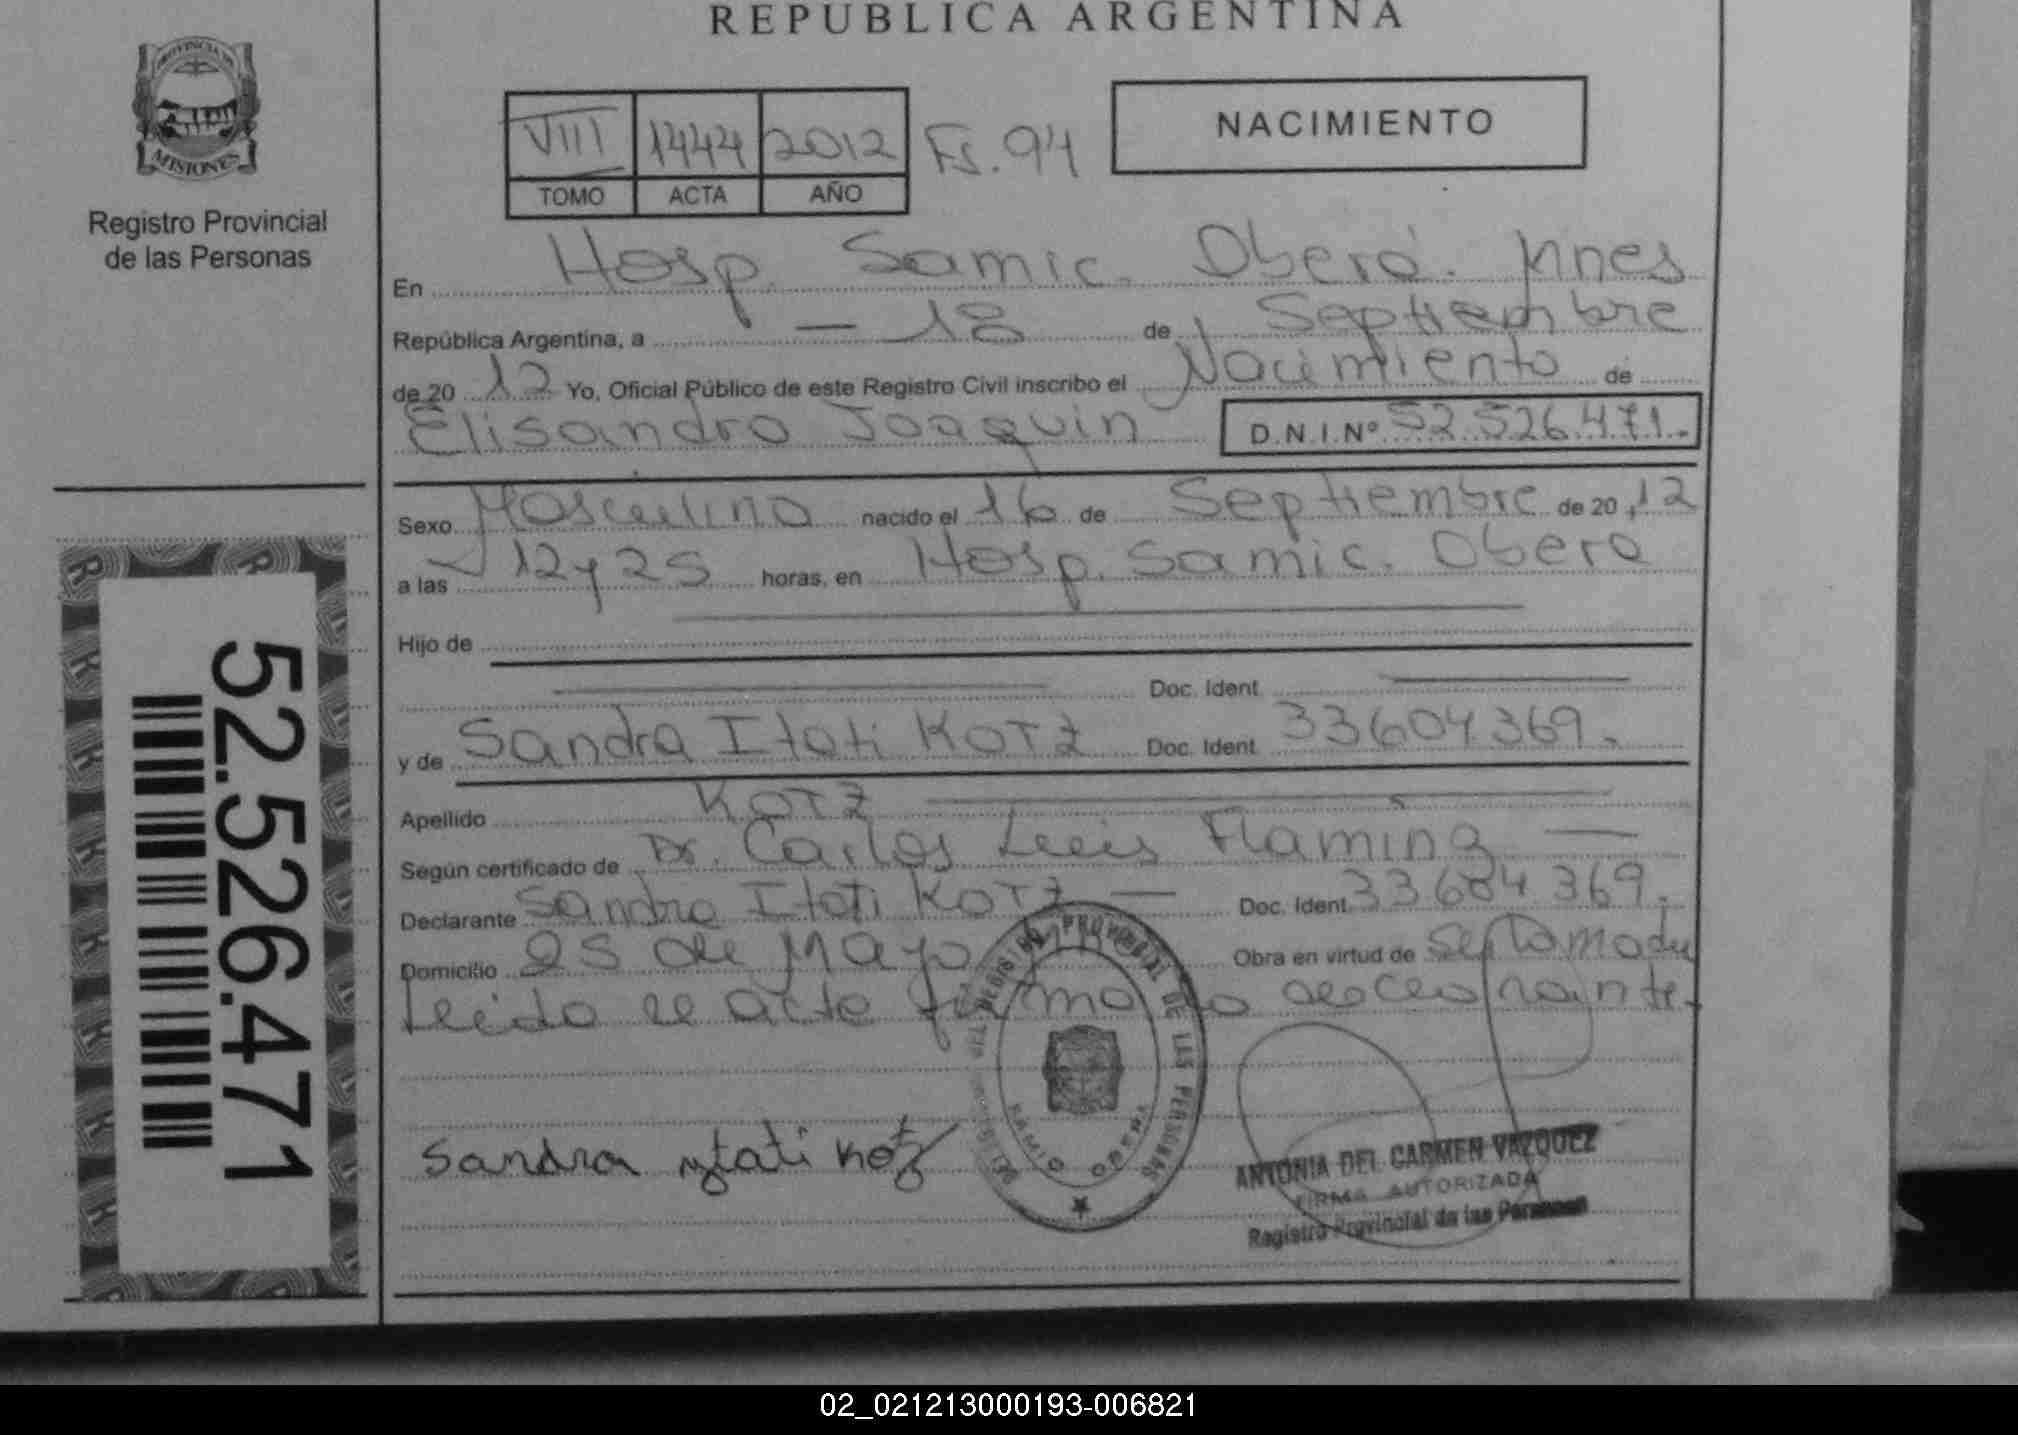 REPUBLICA ARGENTINA
PROVINCIA DE
MISIONES
Registro Provincial
de las Personas
VIII 1444 2012 Fs. 94
TOMO ACTA AÑO
NACIMIENTO
En Hosp. Samic. Oberá. Mnes
República Argentina, a — 18 de Septiembre
de 20 12 Yo, Oficial Público de este Registro Civil inscribo el Nacimiento de
Elisandro Joaquin D.N.I.Nº 52.526.471.-
Sexo Masculino nacido el 16 de Septiembre de 20 12
a las 12 y 25 horas, en Hosp. Samic. Obera
Hijo de
Doc. Ident.
y de Sandra Itati KOTZ Doc. Ident. 33604369.
Apellido KOTZ
Según certificado de Dr. Carlos Luis Flaming —
Declarante Sandra Itati KOTZ — Doc. Ident. 33684369.
Domicilio 25 de Mayo Obra en virtud de ser la madre
Leida el acta firma la declarante.
52.526.471
REGISTRO PROVINCIAL DE LAS PERSONAS
SAMIC OBERA
Sandra ytati Kotz
ANTONIA DEL CARMEN VAZQUEZ
FIRMA AUTORIZADA
Registro Provincial de las Personas
02_021213000193-006821